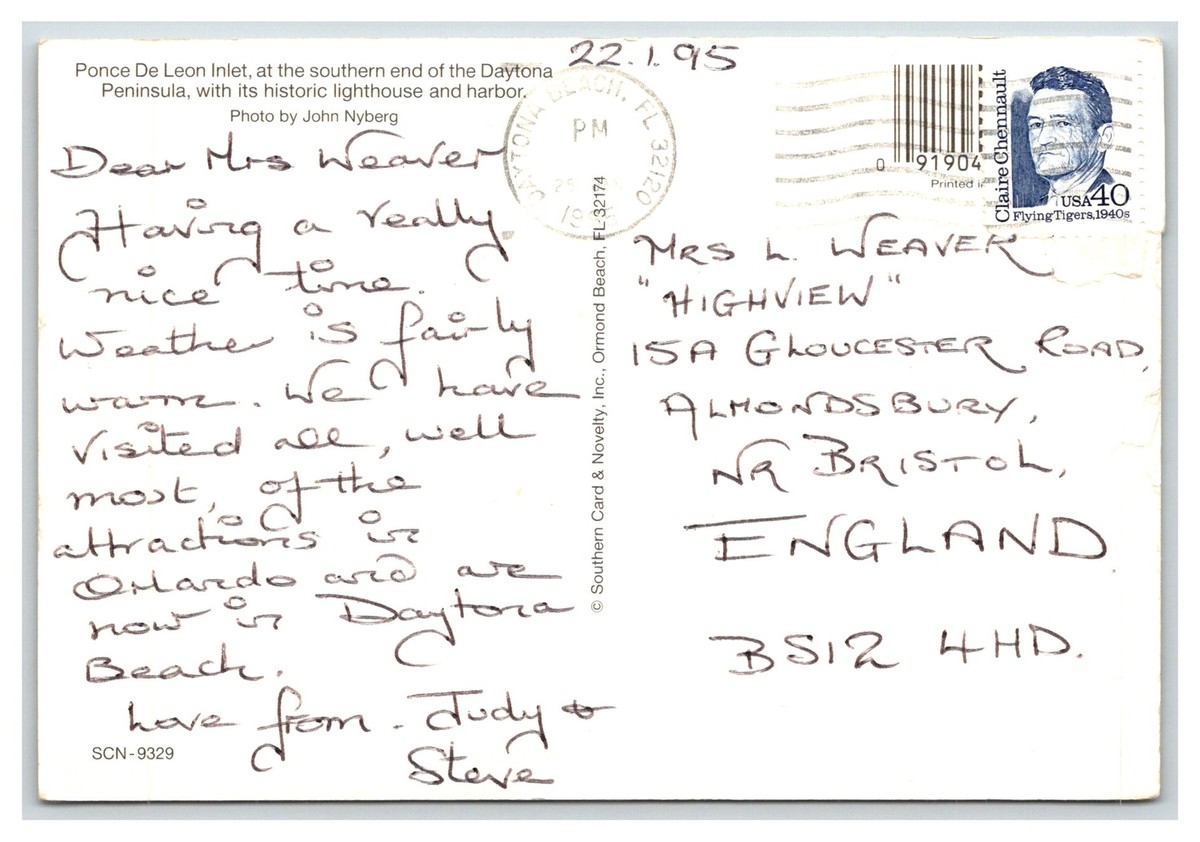 22.1.95
Ponce De Leon Inlet, at the southern end of the Daytona
Peninsula, with its historic lighthouse and harbor.
Photo by John Nyberg
Dear Mrs Weaver
Having a really
nice time.
Weather is fairly
warm. We have
visited all, well
most, of the
attractions in
Orlando and are
now in Daytona
Beach.
Love from - Judy &
Steve
SCN-9329
DAYTONA BEACH, FL 32120
PM
© Southern Card & Novelty, Inc., Ormond Beach, FL 32174
0 91904
Printed
Claire Chennault
USA 40
Flying Tigers, 1940s
MRS L. WEAVER
"HIGHVIEW"
15A GLOUCESTER ROAD,
ALMONDSBURY,
NR BRISTOL,
ENGLAND
BS12 4HD.